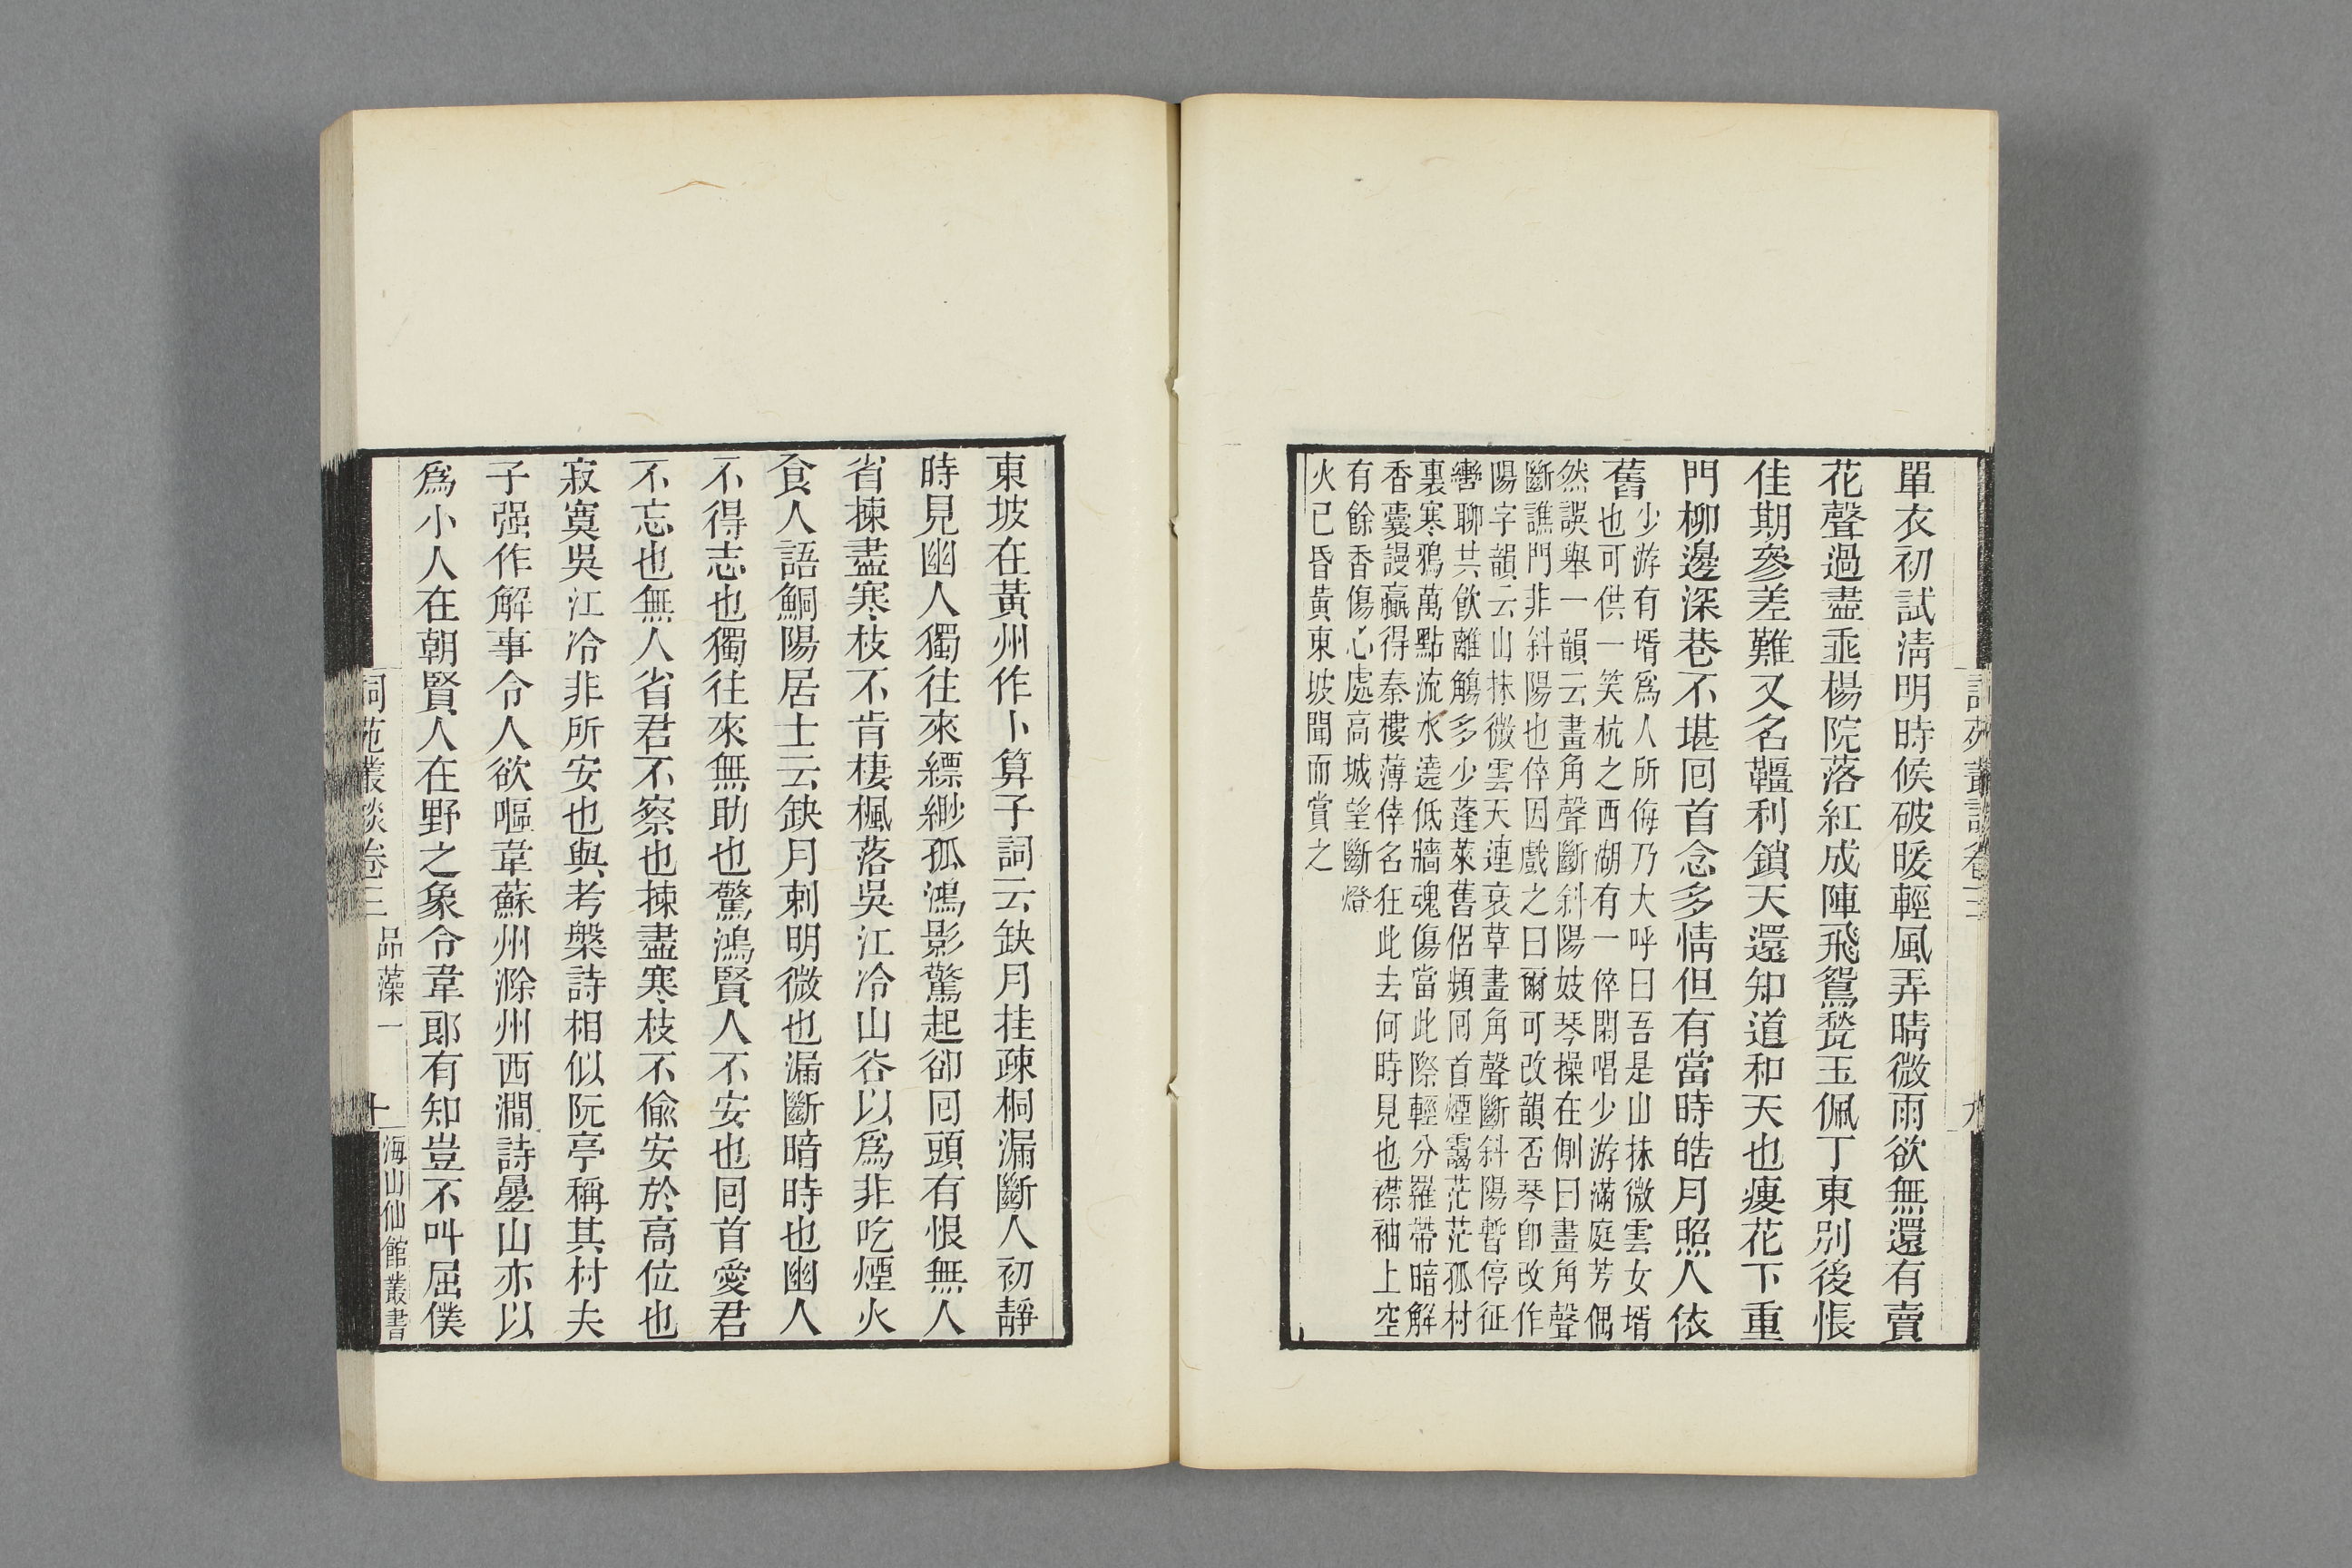 單衣初試淸明時候破暖輕風弄晴微雨欲無還有賣
花聲過盡垂楊院落紅成陣飛鴛甃玉佩丁東別後悵
佳期參差難又名韁利鎖天還知道和天也瘦花下重
門柳邊深巷不堪囘首念多情但有當時皓月照人依
舊
少游有壻爲人所侮乃大呼曰吾是山抹微雲女壻
也可供一笑杭之西湖有一倅閑唱少游滿庭芳偶
然誤舉一韻云畫角聲斷斜陽妓琴操在側曰畫角聲
斷譙門非斜陽也倅因戲之曰爾可改韻否琴卽改作
陽字韻云山抹微雲天連衰草畫角聲斷斜陽暫停征
轡聊共飮離觴多少蓬萊舊侶頻囘首煙靄茫茫孤村
裏寒鴉萬點流水遶低牆魂傷當此際輕分羅帶暗解
香囊謾贏得秦樓薄倖名狂此去何時見也襟袖上空
有餘香傷心處高城望斷燈
火已昏黃東坡聞而賞之
東坡在黃州作卜算子詞云缺月挂疎桐漏斷人初靜
時見幽人獨往來縹緲孤鴻影驚起卻囘頭有恨無人
省揀盡寒枝不肯棲楓落吳江冷山谷以爲非吃煙火
食人語鮦陽居士云缺月刺明微也漏斷暗時也幽人
不得志也獨往來無助也驚鴻賢人不安也囘首愛君
不忘也無人省君不察也揀盡寒枝不偷安於高位也
寂寞吳江冷非所安也與考槃詩相似阮亭稱其村夫
子强作解事令人欲嘔韋蘇州滁州西澗詩疊山亦以
爲小人在朝賢人在野之象令韋郎有知豈不叫屈僕
詞苑叢談卷三 品藻一 十 海山仙館叢書